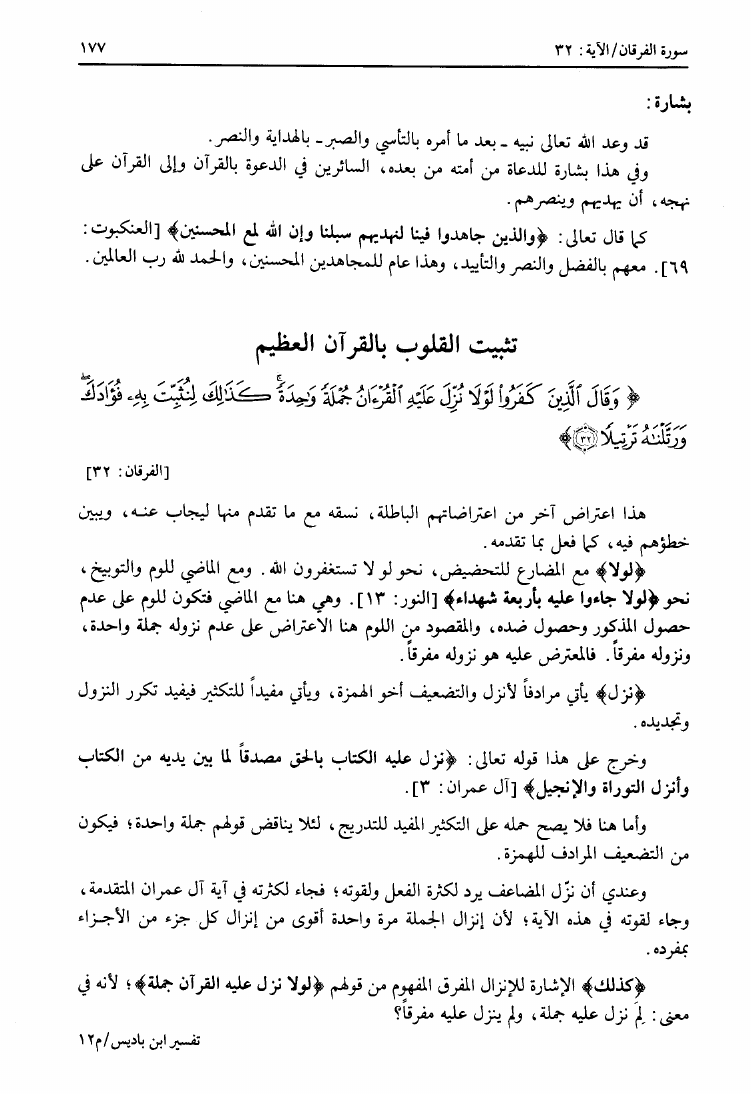 سورة الفرقان/الآية: ٣٢
١٧٧
بشارة:
قد وعد الله تعالى نبيه ـ بعد ما أمره بالتأسي والصبر ـ بالهداية والنصر.
وفي هذا بشارة للدعاة من أمته من بعده، السائرين في الدعوة بالقرآن وإلى القرآن على
نهجه، أن يهديهم وينصرهم.
كما قال تعالى: ﴿والذين جاهدوا فينا لنهديهم سبلنا وإن الله لمع المحسنين﴾ [العنكبوت:
٦٩]. معهم بالفضل والنصر والتأييد، وهذا عام للمجاهدين المحسنين، والحمد لله رب العالمين.
تثبيت القلوب بالقرآن العظيم
﴿ وَقَالَ ٱلَّذِينَ كَفَرُوا۟ لَوْلَا نُزِّلَ عَلَيْهِ ٱلْقُرْءَانُ جُمْلَةً وَٰحِدَةً ۚ كَذَٰلِكَ لِنُثَبِّتَ بِهِۦ فُؤَادَكَ ۖ
وَرَتَّلْنَٰهُ تَرْتِيلًا ۝٣٢﴾
[الفرقان: ٣٢]
هذا اعتراض آخر من اعتراضاتهم الباطلة، نسقه مع ما تقدم منها ليجاب عنه، ويبين
خطؤهم فيه، كما فعل بما تقدمه.
﴿لولا﴾ مع المضارع للتحضيض، نحو لو لا تستغفرون الله. ومع الماضي للوم والتوبيخ،
نحو ﴿لولا جاءوا عليه بأربعة شهداء﴾ [النور: ١٣]. وهي هنا مع الماضي فتكون للوم على عدم
حصول المذكور وحصول ضده، والمقصود من اللوم هنا الاعتراض على عدم نزوله جملة واحدة،
ونزوله مفرقاً. فالمعترض عليه هو نزوله مفرقاً.
﴿نزل﴾ يأتي مرادفاً لأنزل والتضعيف أخو الهمزة، ويأتي مفيداً للتكثير فيفيد تكرر النزول
وتجديده.
وخرج على هذا قوله تعالى: ﴿نزل عليه الكتاب بالحق مصدقاً لما بين يديه من الكتاب
وأنزل التوراة والإنجيل﴾ [آل عمران: ٣].
وأما هنا فلا يصح حمله على التكثير المفيد للتدريج، لئلا يناقض قولهم جملة واحدة؛ فيكون
من التضعيف المرادف للهمزة.
وعندي أن نزّل المضاعف يرد لكثرة الفعل ولقوته؛ فجاء لكثرته في آية آل عمران المتقدمة،
وجاء لقوته في هذه الآية؛ لأن إنزال الجملة مرة واحدة أقوى من إنزال كل جزء من الأجزاء
بمفرده.
﴿كذلك﴾ الإشارة للإنزال المفرق المفهوم من قولهم ﴿لولا نزل عليه القرآن جملة﴾؛ لأنه في
معنى: لِمَ نزل عليه جملة، ولم ينزل عليه مفرقاً؟
تفسير ابن باديس/م١٢